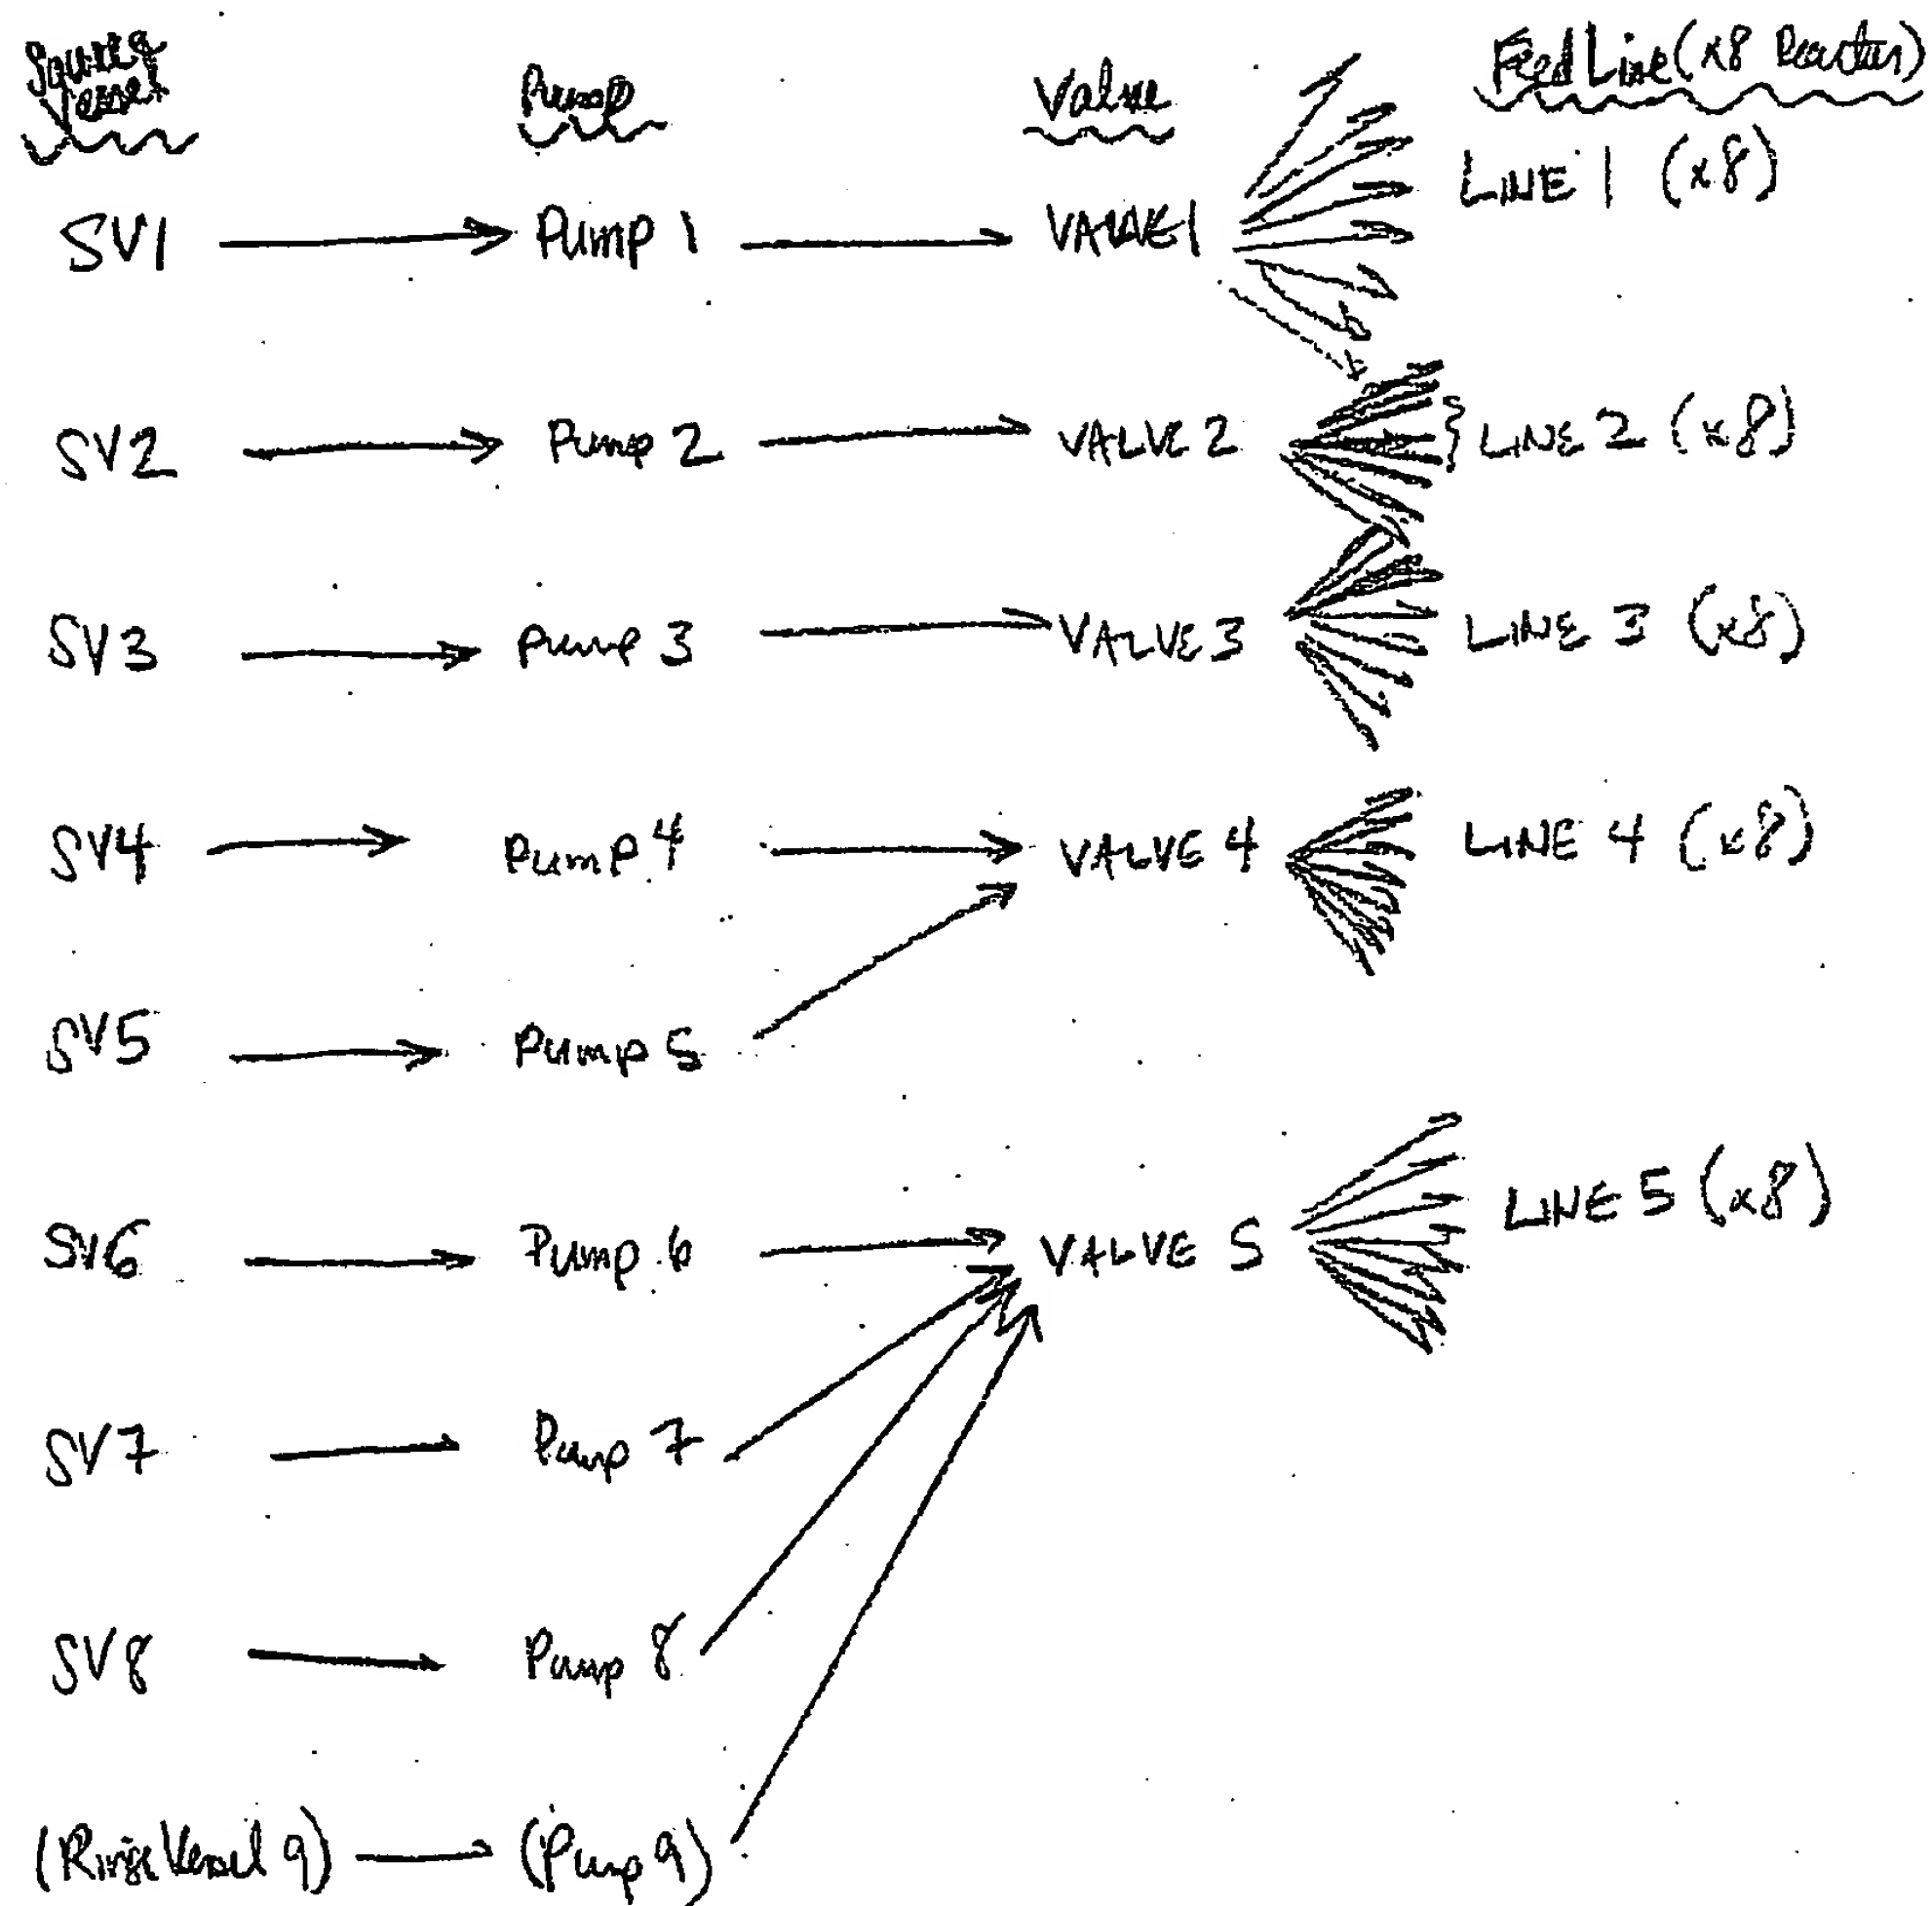 Source Vessel Pump Valve Feed Line (x8 Reactors)
SV1 PUMP 1 VALVE 1 LINE 1 (x8)
SV2 Pump 2 VALVE 2 LINE 2 (x8)
SV3 Pump 3 VALVE 3 LINE 3 (x8)
SV4 Pump 4 VALVE 4 LINE 4 (x8)
SV5 Pump 5
SV6 Pump 6 VALVE 5 LINE 5 (x8)
SV7 Pump 7
SV8 Pump 8
(Rinse Vessel 9) (Pump 9)